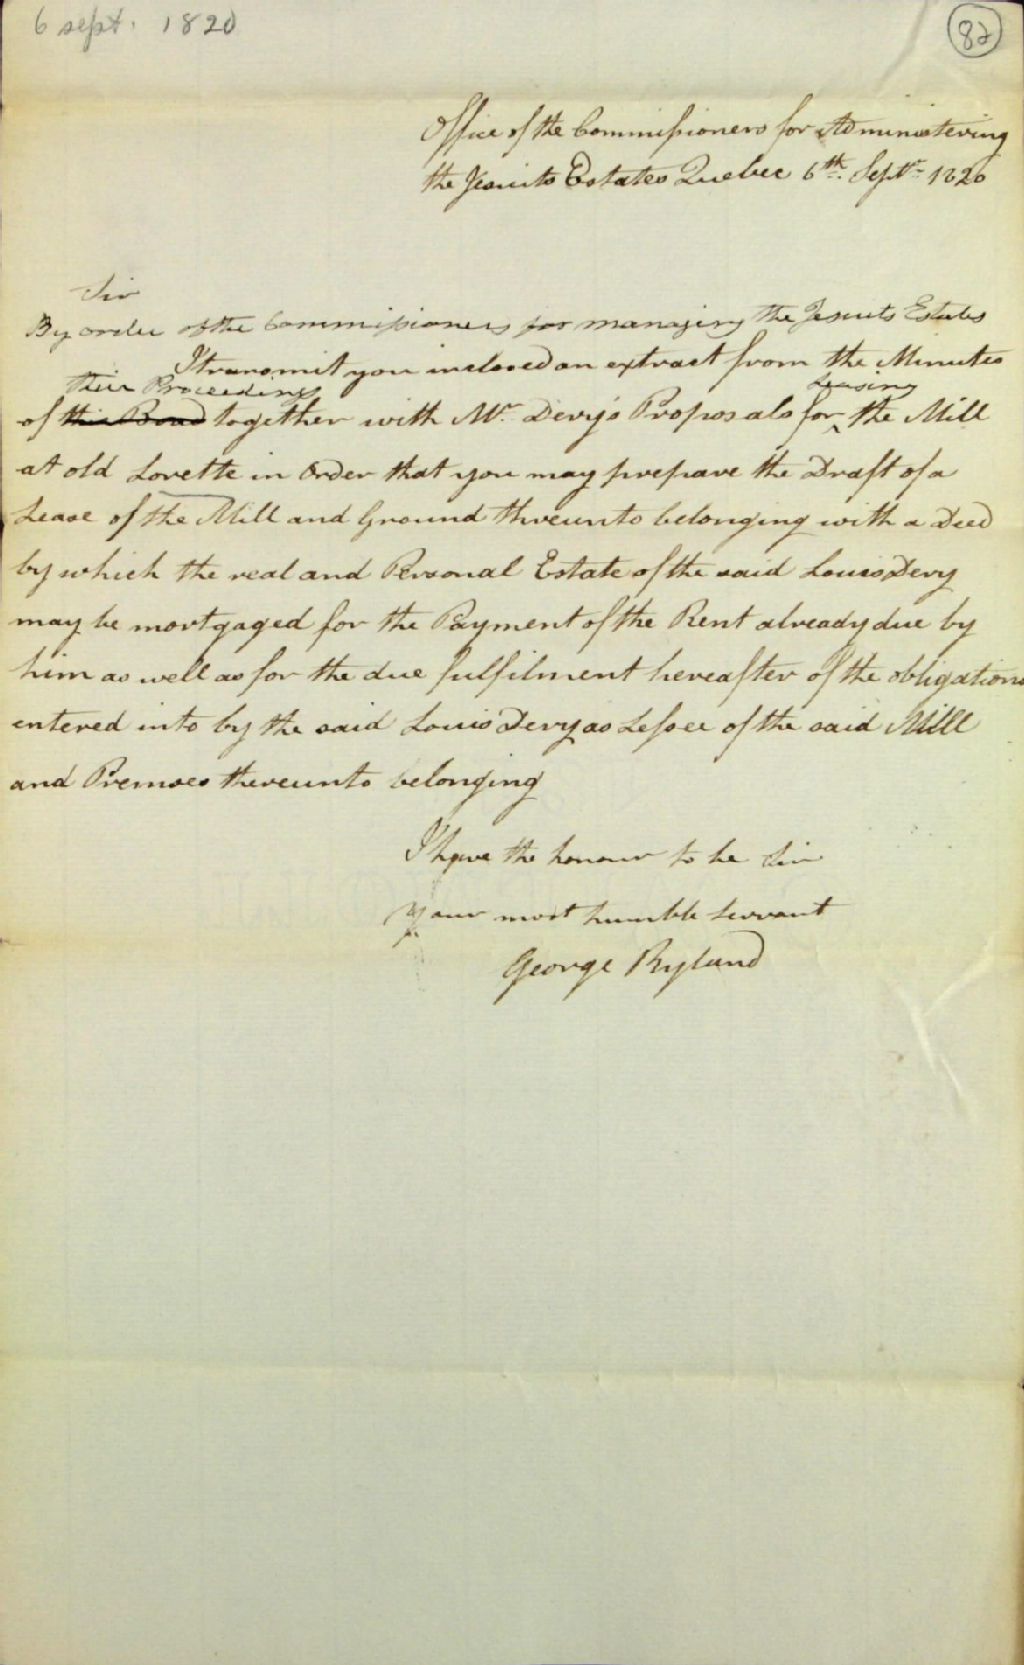 6 sept. 1820
82
Office of the Commissioners for Administering
the Jesuits Estates Quebec 6th. Septr. 1820
Sir
By order of the Commissioners for managing the Jesuits Estates
I transmit you inclosed an extract from the Minutes
their Proceedings leasing
of this Board together with Mr. Dery's Proposals for ^ the Mill
at old Lorette in Order that you may prepare the Draft of a
Lease of the Mill and Ground thereunto belonging with a Deed
by which the real and Personal Estate of the said Louis Dery
may be mortgaged for the Payment of the Rent already due by
him as well as for the due fulfilment hereafter of the obligations
entered into by the said Louis Dery as Lessee of the said Mill
and Premises thereunto belonging
I have the honour to be Sir
Your most humble Servant
George Ryland